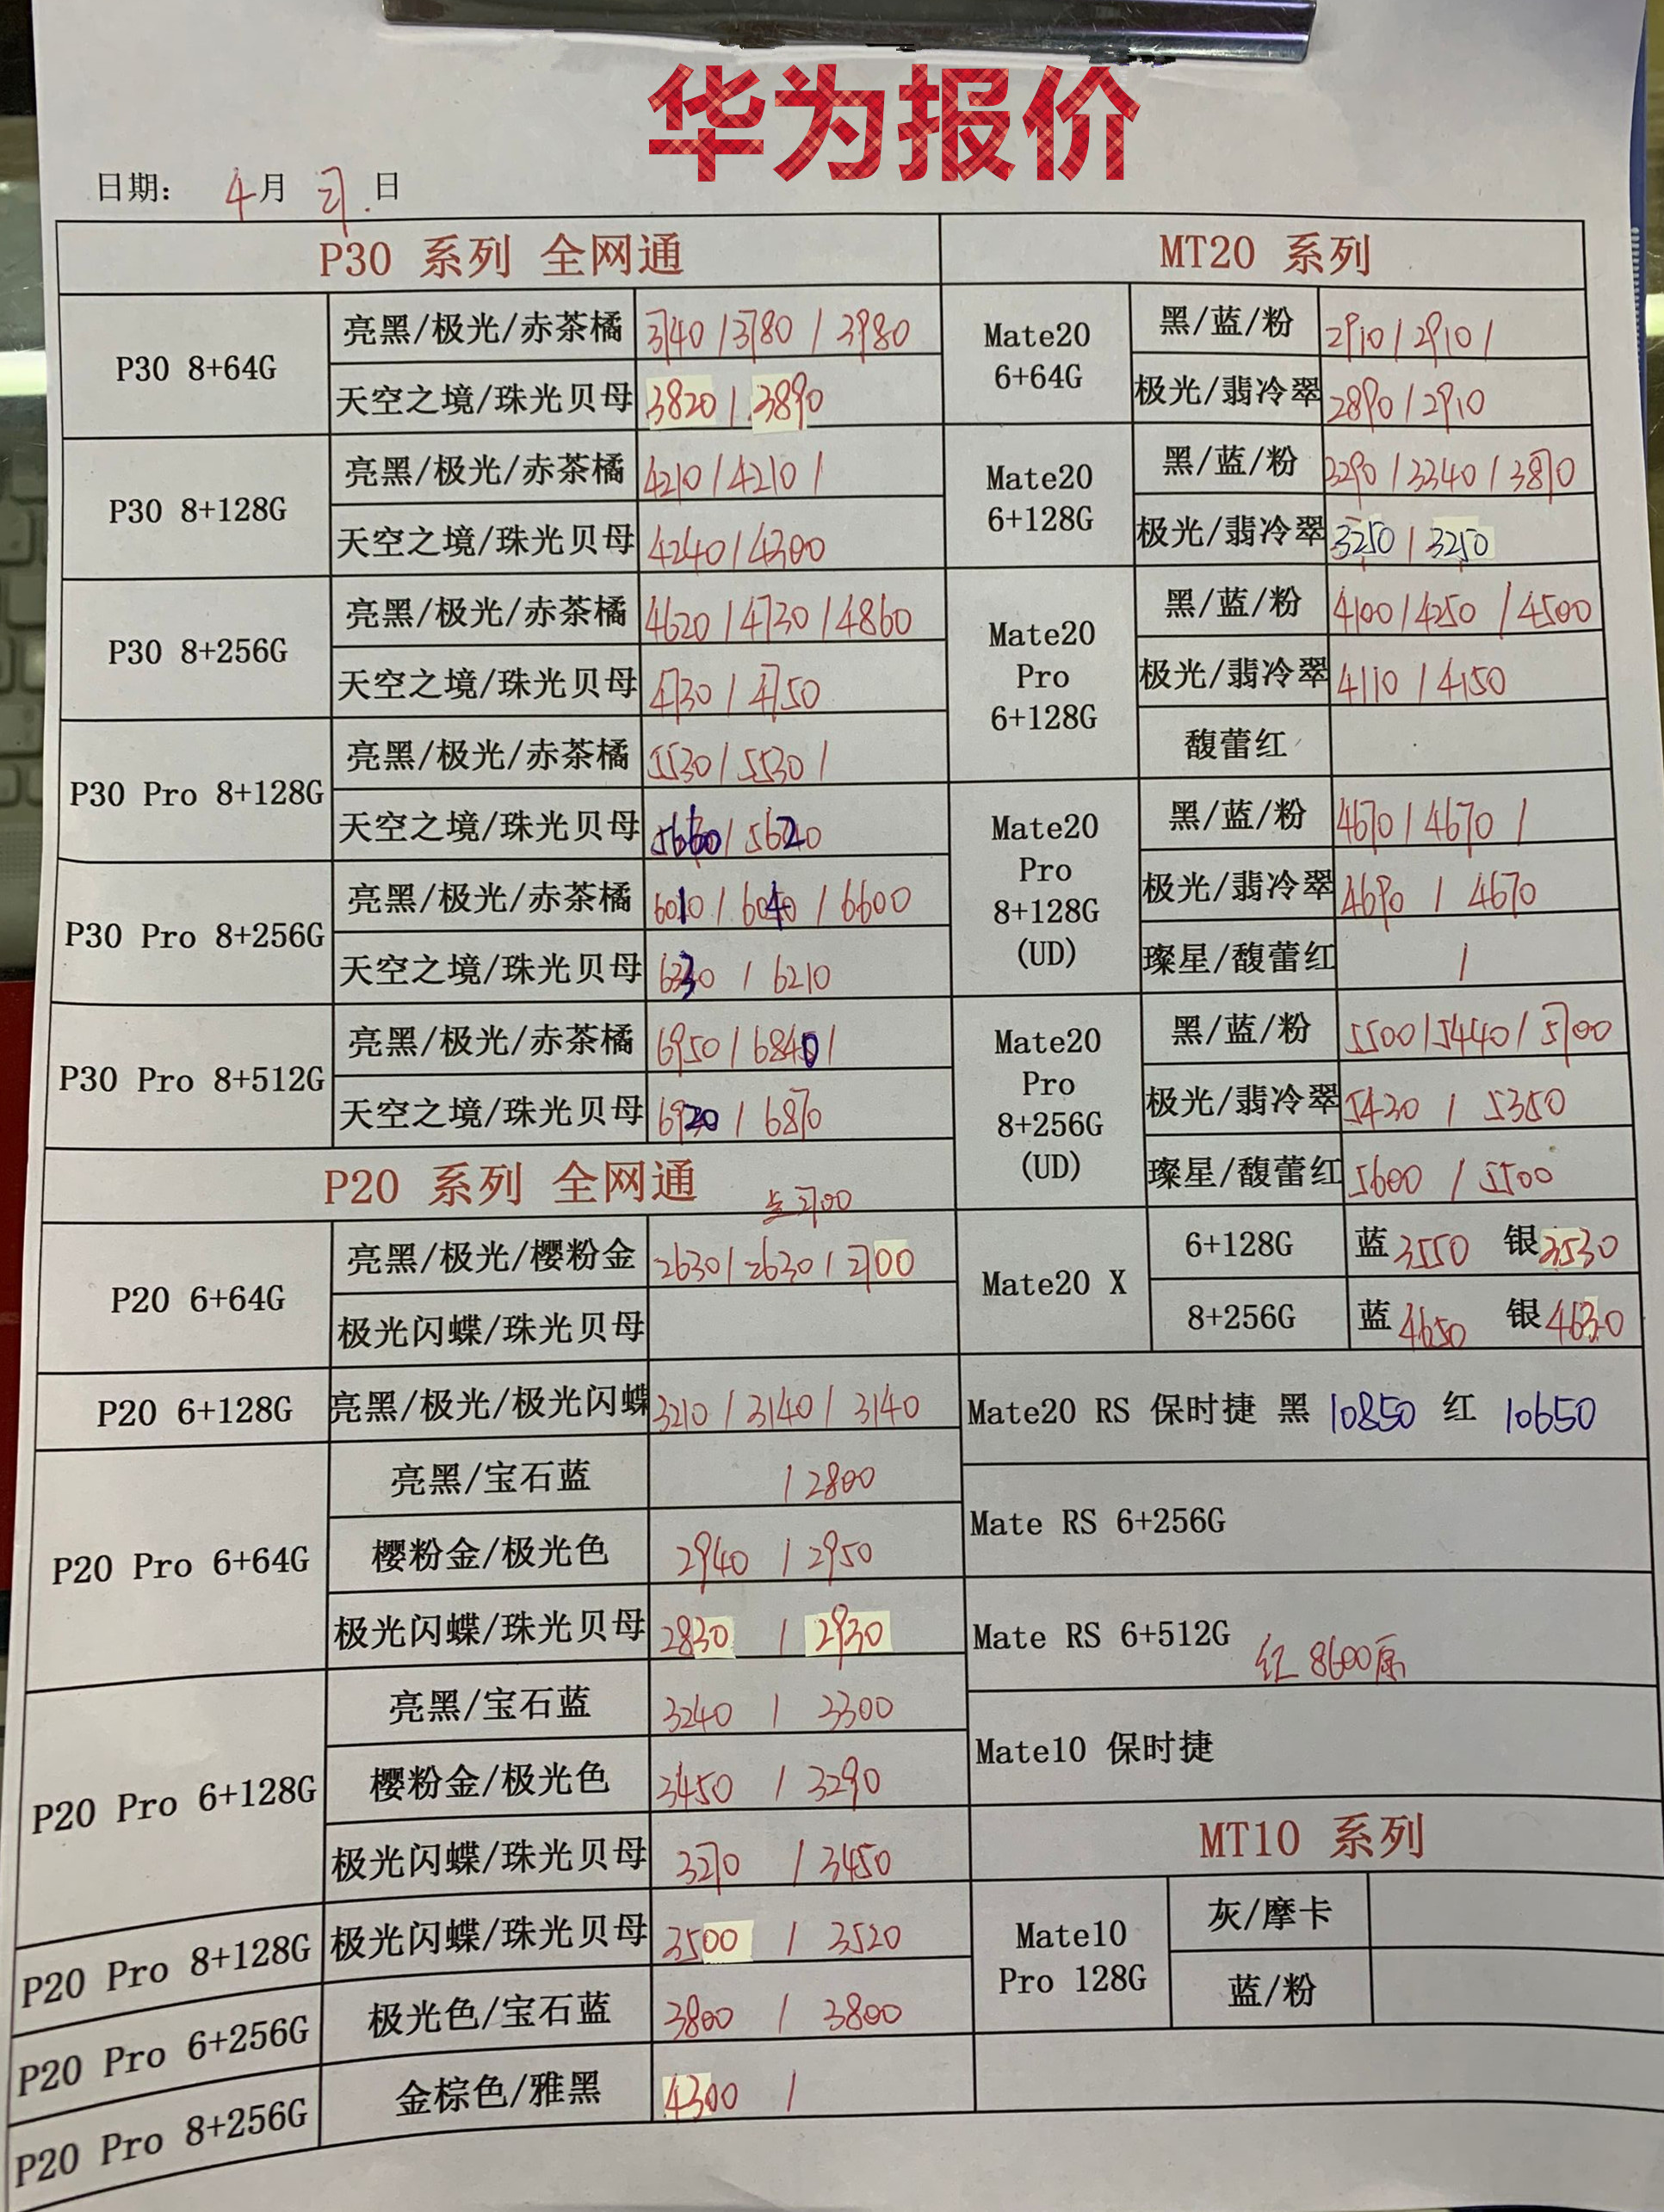 华为报价
日期: 4月 27日
P30 系列 全网通
P30 8+64G
亮黑/极光/赤茶橘 3740 / 3780 / 3980
天空之境/珠光贝母 3820 / 3890
P30 8+128G
亮黑/极光/赤茶橘 4210 / 4210 /
天空之境/珠光贝母 4240 / 4300
P30 8+256G
亮黑/极光/赤茶橘 4620 / 4730 / 4860
天空之境/珠光贝母 4730 / 4750
P30 Pro 8+128G
亮黑/极光/赤茶橘 5530 / 5530 /
天空之境/珠光贝母 5660 / 5620
P30 Pro 8+256G
亮黑/极光/赤茶橘 6010 / 6040 / 6600
天空之境/珠光贝母 6230 / 6210
P30 Pro 8+512G
亮黑/极光/赤茶橘 6950 / 6840 /
天空之境/珠光贝母 6920 / 6870
P20 系列 全网通
2700
P20 6+64G
亮黑/极光/樱粉金 2630 / 2630 / 2700
极光闪蝶/珠光贝母
P20 6+128G
亮黑/极光/极光闪蝶 3210 / 3140 / 3140
P20 Pro 6+64G
亮黑/宝石蓝 / 2800
樱粉金/极光色 2940 / 2950
极光闪蝶/珠光贝母 2830 / 2930
P20 Pro 6+128G
亮黑/宝石蓝 3240 / 3300
樱粉金/极光色 3450 / 3290
极光闪蝶/珠光贝母 3270 / 3450
P20 Pro 8+128G
极光闪蝶/珠光贝母 3500 / 3520
P20 Pro 6+256G
极光色/宝石蓝 3800 / 3800
P20 Pro 8+256G
金棕色/雅黑 4300 /
MT20 系列
Mate20
6+64G
黑/蓝/粉 2910 / 2910 /
极光/翡冷翠 2890 / 2910
Mate20
6+128G
黑/蓝/粉 3290 / 3340 / 3870
极光/翡冷翠 3250 / 3250
Mate20
Pro
6+128G
黑/蓝/粉 4100 / 4250 / 4500
极光/翡冷翠 4110 / 4150
馥蕾红
Mate20
Pro
8+128G
(UD)
黑/蓝/粉 4670 / 4670 /
极光/翡冷翠 4690 / 4670
璨星/馥蕾红 /
Mate20
Pro
8+256G
(UD)
黑/蓝/粉 5500 / 5440 / 5700
极光/翡冷翠 5430 / 5350
璨星/馥蕾红 5600 / 5500
Mate20 X
6+128G 蓝 3550 银 3530
8+256G 蓝 4650 银 4630
Mate20 RS 保时捷 黑 10850 红 10650
Mate RS 6+256G
Mate RS 6+512G 红 8600原
Mate10 保时捷
MT10 系列
Mate10
Pro 128G
灰/摩卡
蓝/粉